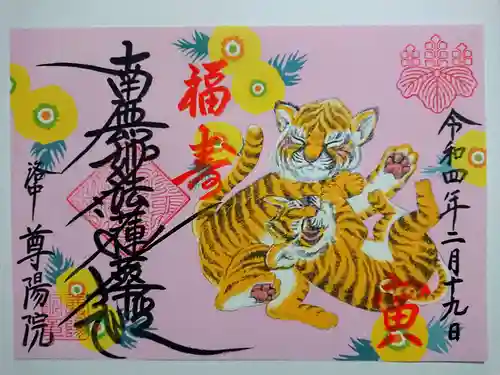 令和四年二月十九日
福寿
寅
南無妙法蓮華経
洛中 尊陽院